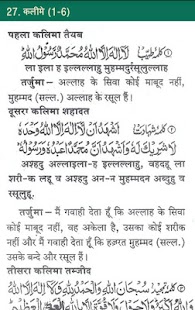 27. कलीमे (1-6)
पहला कलिमा तैयब
كلمۂ طیّب لَا اِلٰهَ اِلَّا اللهُ مُحَمَّدٌ رَّسُوْلُ اللهِ
ला इला ह इल्लल्लाहु मुहम्मदुर्रसूलुल्लाह
तर्जुमा – अल्लाह के सिवा कोई माबूद नहीं,
मुहम्मद (सल्ल.) अल्लाह के रसूल हैं।
दूसरा कलिमा शहादत
كلمۂ شہادت اَشْهَدُ اَنْ لَّا اِلٰهَ اِلَّا اللهُ وَحْدَهٗ
لَا شَرِيْكَ لَهٗ وَاَشْهَدُ اَنَّ مُحَمَّدًا عَبْدُهٗ وَرَسُوْلُهٗ
अश्हदु अल्लाइला-ह इल्लल्लाहु, वहदहू ला
शरी-क लहू व अश्हदु अन-न मुहम्मदन अब्दुहु व
रसूलुहू.
तर्जुमा – मैं गवाही देता हूँ कि अल्लाह के सिवा
कोई माबूद नहीं, वह अकेला है, उसका कोई शरीक
नहीं और मैं गवाही देता हूँ कि हज़रत मुहम्मद (सल्ल).
उसके बन्दे और रसूल हैं।
तीसरा कलिमा तम्जीद
سُبْحَانَ اللهِ وَالْحَمْدُ لِلّٰهِ وَلَا اِلٰهَ اِلَّا